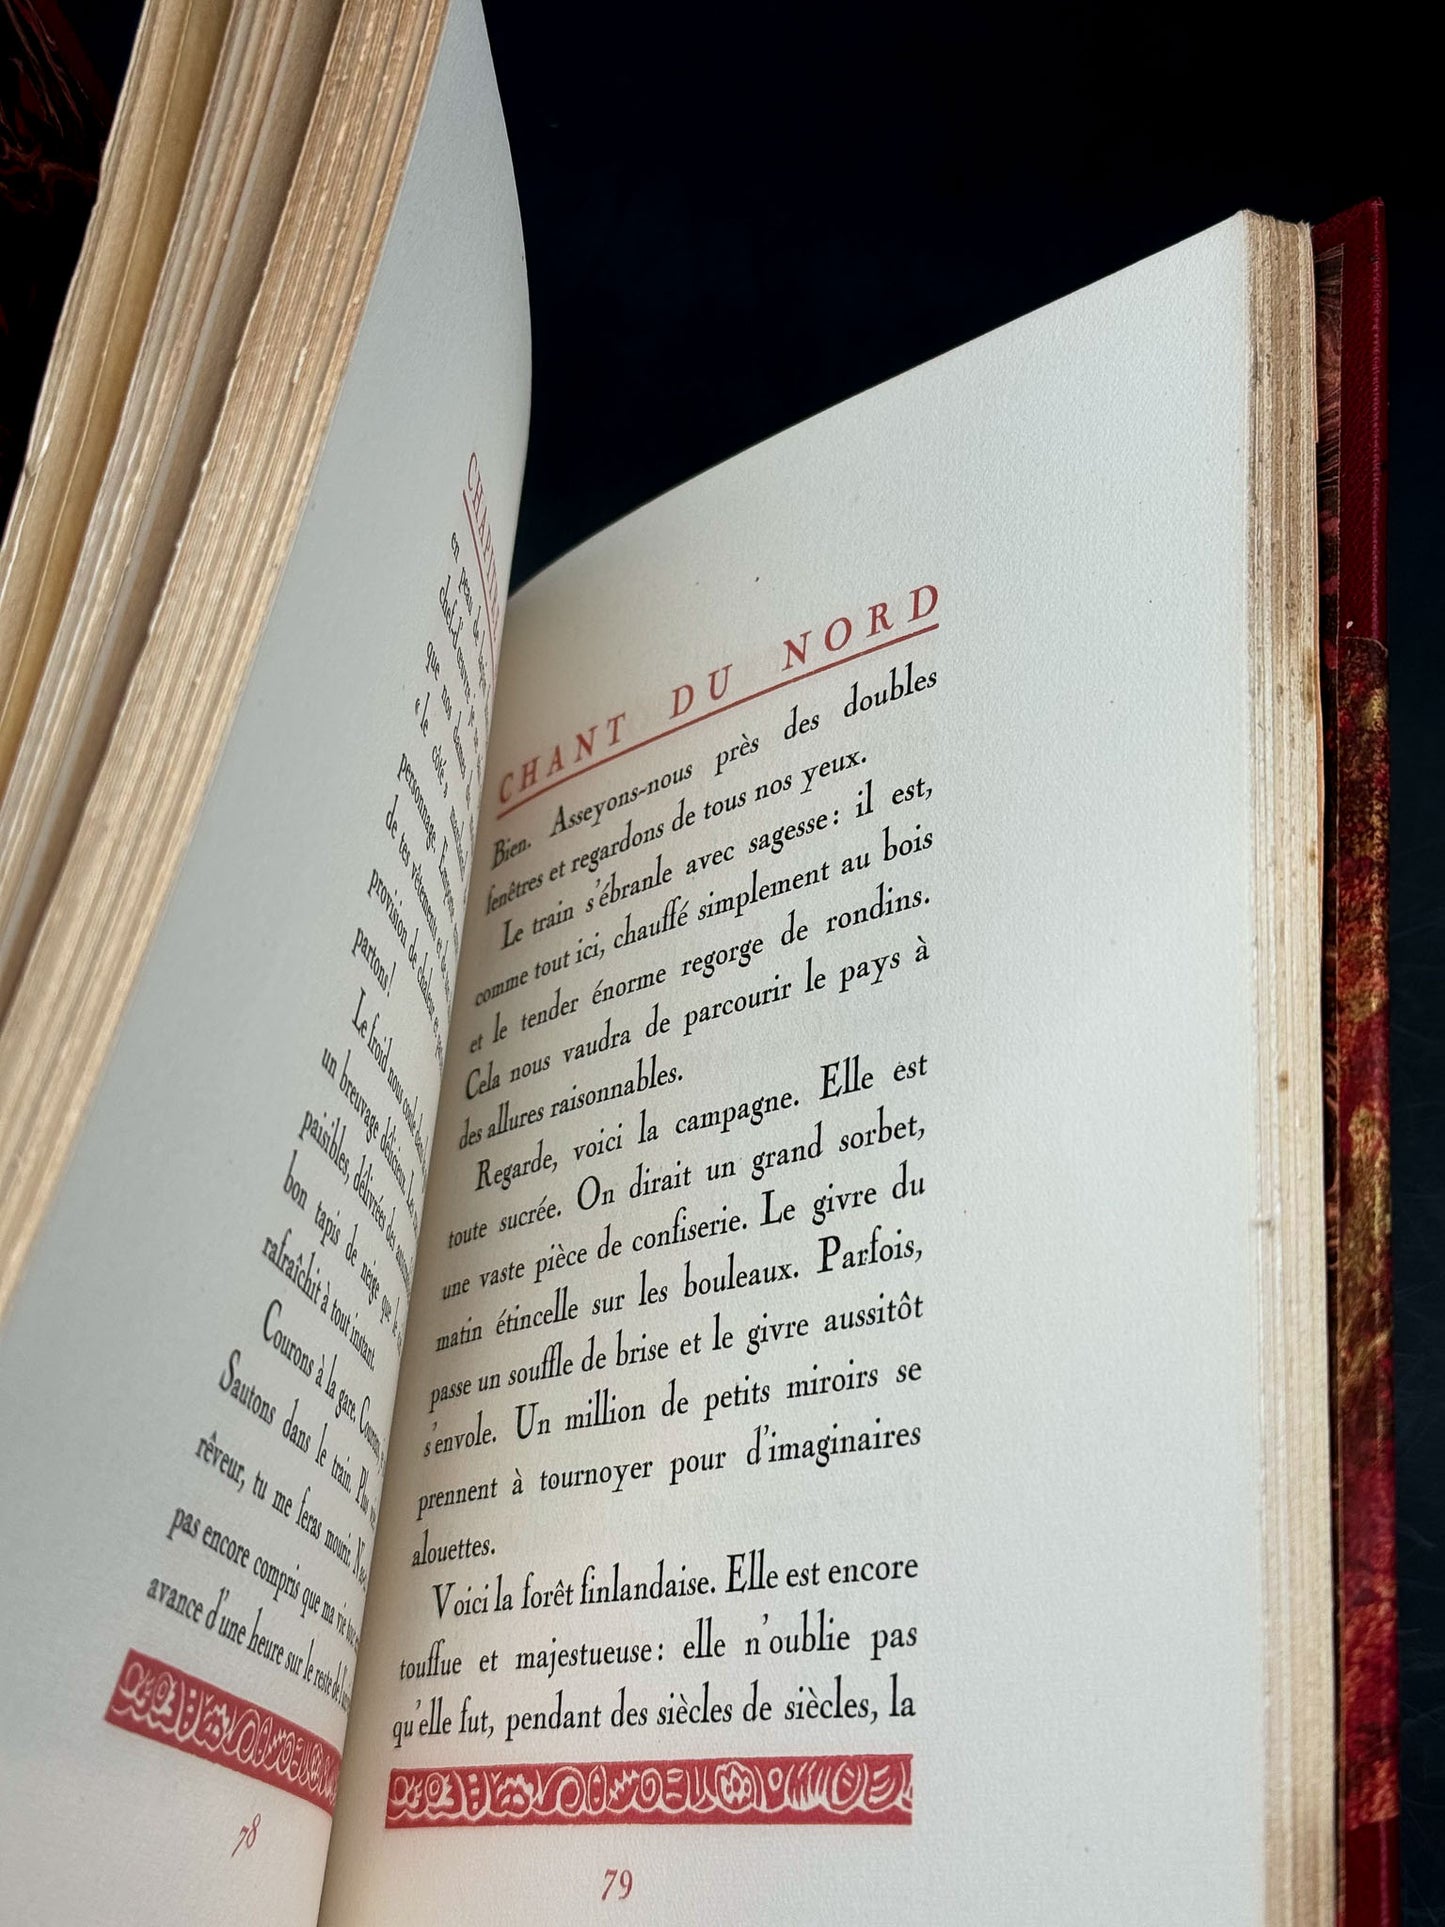 CHAPITRE
en peau de
chef-d'œuvre
que nos dames
« le côté »
personnage.
de tes vêtements et de
provision de chaleur et
partons!
Le froid nous coule dans
un breuvage délicieux. Les
paisibles, délivrées des
bon tapis de neige que le
rafraîchit à tout instant.
Courons à la gare. Courons
Sautons dans le train.
rêveur, tu me feras mourir.
pas encore compris que ma vie
avance d'une heure sur le reste de
78
CHANT DU NORD
Bien. Asseyons-nous près des doubles
fenêtres et regardons de tous nos yeux.
Le train s'ébranle avec sagesse: il est,
comme tout ici, chauffé simplement au bois
et le tender énorme regorge de rondins.
Cela nous vaudra de parcourir le pays à
des allures raisonnables.
Regarde, voici la campagne. Elle est
toute sucrée. On dirait un grand sorbet,
une vaste pièce de confiserie. Le givre du
matin étincelle sur les bouleaux. Parfois,
passe un souffle de brise et le givre aussitôt
s'envole. Un million de petits miroirs se
prennent à tournoyer pour d'imaginaires
alouettes.
Voici la forêt finlandaise. Elle est encore
touffue et majestueuse: elle n'oublie pas
qu'elle fut, pendant des siècles de siècles, la
79